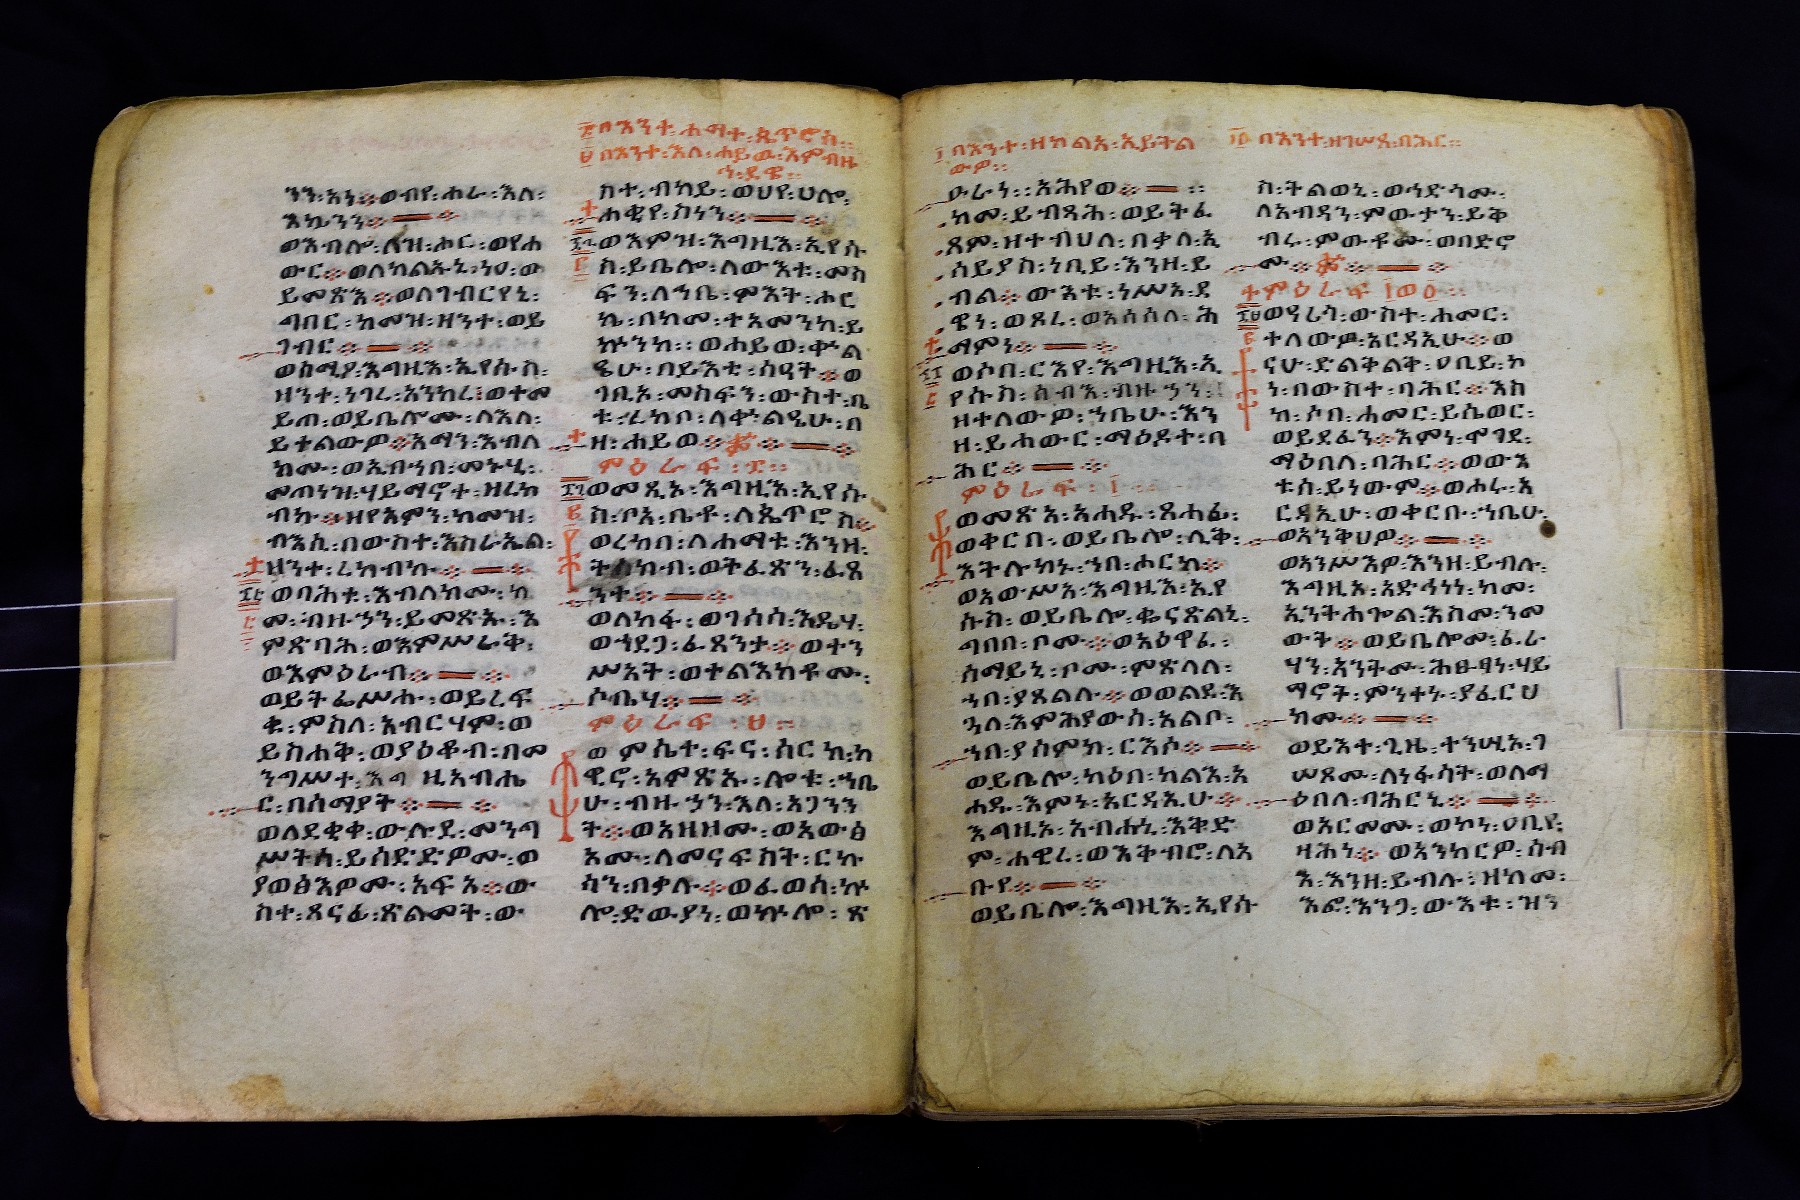 ፯ በእንተ፡ሐማተ፡ጴጥሮስ።
፰ በእንተ፡እለ፡ሐይዉ፡እምብዙ
ኀ፡ደዌ።
ንን፡አነ፨ወብየ፡ሐራ፡እለ፡
እኴንን፨
ወእብሎ፡ለዝ፡ሑር፡ወየሐ
ውር፨ወለካልኡኒ፡ነዐ፡ወ
ይመጽእ፨ወለገብርየኒ፡
ግበር፡ከመዝ፡ዘንተ፡ወይ
ገብር፨
ወሰሚዖ፡እግዚእ፡ኢየሱስ፡
ዘንተ፡ነገረ፡አንከረ፡ወተመ
ይጠ፡ወይቤሎሙ፡ለእለ፡
ይተልውዎ፨አማን፡እብለ
ክሙ፡ወኢብኀበ፡መኑሂ፡
መጠነዝ፡ሃይማኖተ፡ዘረከ
ብኩ፨ዘየአምን፡ከመዝ፡
ብእሲ፡በውስተ፡እስራኤል፡
ዘንተ፡ረከብኩ፨
ወባሕቱ፡እብለክሙ፡ከ
መ፡ብዙኃን፡ይመጽኡ፡እ
ምጽባሕ፡ወእምሥራቅ፡
ወእምዕራብ፨
ወይትፌሥሑ፡ወይረፍ
ቁ፡ምስለ፡አብርሃም፡ወ
ይስሐቅ፡ወያዕቆብ፡በመ
ንግሥተ፡እግዚአብሔ
ር፡በሰማያት፨
ወለደቂቀ፡ውሉደ፡መንግ
ሥትሰ፡ይሰድድዎሙ፡ወ
ያወፅእዎሙ፡አፍአ፨ው
ስተ፡ጸናፊ፡ጽልመት፡ው
ስተ፡ብካይ፡ወሀየ፡ሀሎ፡
ሐቂየ፡ስነን፨
ወእምዝ፡እግዚእ፡ኢየሱ
ስ፡ይቤሎ፡ለውእቱ፡መስ
ፍን፡ለኀቤ፡ምእት፡ሖር
ኬ፡በከመ፡ተአመንከ፡ይ
ኩንከ፡፡ወሐይወ፡ቍል
ዔሁ፡በይእቲ፡ሰዓት፨ወ
ገቢኦ፡መስፍን፡ውስተ፡ቤ
ቱ፡ረከቦ፡ለቍልዔሁ፡በ
ዘ፡ሐይወ፨
ምዕራፍ፡፯።
ወመጺኦ፡እግዚእ፡ኢየሱ
ስ፡ቦአ፡ቤቶ፡ለጴጥሮስ፨
ወረከበ፡ለሐማቱ፡እንዘ፡
ትሰክብ፡ወትፈጽን፡ፈጸ
ንተ፨
ወለከፋ፡ወገሰሳ፡እዴሃ፡
ወኀደጋ፡ፈጸንታ፨ወተን
ሥአት፡ወተልእከቶሙ፡
ሶቤሃ፨
ምዕራፍ፡፰።
ወምሴተ፡ፍና፡ሰርክ፡ከ
ዊኖ፡አምጽኡ፡ሎቱ፡ኀቤ
ሁ፡ብዙኃን፡እለ፡አጋንን
ት፨ወአዘዘሙ፡ወአውፅ
አሙ፡ለመናፍስት፡ርኩ
ሳን፡በቃሉ፨ወፈወሰ፡ኵ
ሎ፡ድውያነ፡ወኵሎ፡ጽ
፱ በእንተ፡ዘከልአ፡ኢይትል
ውዎ።
ዑራነ፡፡አሕየወ፨
ከመ፡ይብጻሕ፡ወይትፌ
ጸም፡ዘተብህለ፡በቃለ፡ኢ
ሰይያስ፡ነቢይ፡እንዘ፡ይ
ብል፨ውእቱ፡ነሥአ፡ደ
ዌነ፡ወጾረ፡ወአሰሰለ፡ሕ
ማምነ፨
ወሶበ፡ርእየ፡እግዚእ፡ኢ
የሱስ፡ሰብእ፡ብዙኃን፡
ዘተለውዎ፡ኀቤሁ፡እን
ዘ፡ይሐውር፡ማዕዶተ፡ባ
ሕር፨
ምዕራፍ፡፱
ወመጽአ፡አሐዱ፡ጸሐፊ፡
ወቀርበ፡ወይቤሎ፡ሊቅ፡
እትሉከኑ፡ኀበ፡ሖርከ፨
ወአውሥአ፡እግዚእ፡ኢየ
ሱስ፡ወይቤሎ፡ቈናጽልኒ፡
ግበበ፡ቦሙ፨ወአዕዋፈ፡
ሰማይኒ፡ቦሙ፡ምጽላለ፡
ኀበ፡ያጸልሉ፨ወወልደ፡እ
ጓለ፡እምሕያውስ፡አልቦ፡
ኀበ፡ያሰምክ፡ርእሶ፨
ወይቤሎ፡ካዕበ፡ካልእ፡አ
ሐዱ፡እምነ፡አርዳኢሁ፨
እግዚኦ፡አብሐኒ፡እቅድ
ም፡ሐዊረ፡ወእቅብሮ፡ለአ
ቡየ፨
ወይቤሎ፡እግዚእ፡ኢየሱ
፲ በእንተ፡ዘገሠጸ፡ባሕር።
ስ፡ትልወኒ፡ወኅድጎሙ፡
ለአብዳን፡ምውታን፡ይቅ
ብሩ፡ምውቶሙ፡ወበድኖ
ሙ፨
ወዓሪጎ፡ውስተ፡ሐመር፡
ተለውዎ፡አርዳኢሁ፨ወ
ናሁ፡ድልቅልቅ፡ዐቢይ፡ኮ
ነ፡በውስተ፡ባሕር፨እስ
ከ፡ሶበ፡ሐመር፡ይሴወር፡
ወይደፈን፨እምነ፡ሞገደ፡
ማዕበለ፡ባሕር፨ወውእ
ቱሰ፡ይነውም፨ወሖሩ፡አ
ርዳኢሁ፡ወቀርቡ፡ኀቤሁ፡
ወአንቅህዎ፨
ወአንሥእዎ፡እንዘ፡ይብሉ፡
እግዚኦ፡አድኅነነ፡ከመ፡
ኢንትሐጐል፡እስመ፡ንመ
ውት፨ወይቤሎሙ፡ፈራ
ሃን፡አንትሙ፡ሕፁፃነ፡ሃይ
ማኖት፡ምንተኑ፡ያፈርህ
ክሙ፨
ወይእተ፡ጊዜ፡ተንሢኦ፡ገ
ሠጾሙ፡ለነፋሳት፡ወለማ
ዕበለ፡ባሕርኒ፨
ወአርመሙ፡ወኮነ፡ዐቢየ፡
ዛሕነ፨ወአንከርዎ፡ሰብ
እ፡እንዘ፡ይብሉ፡ዘከመ፡
እፎ፡እንጋ፡ውእቱ፡ዝን